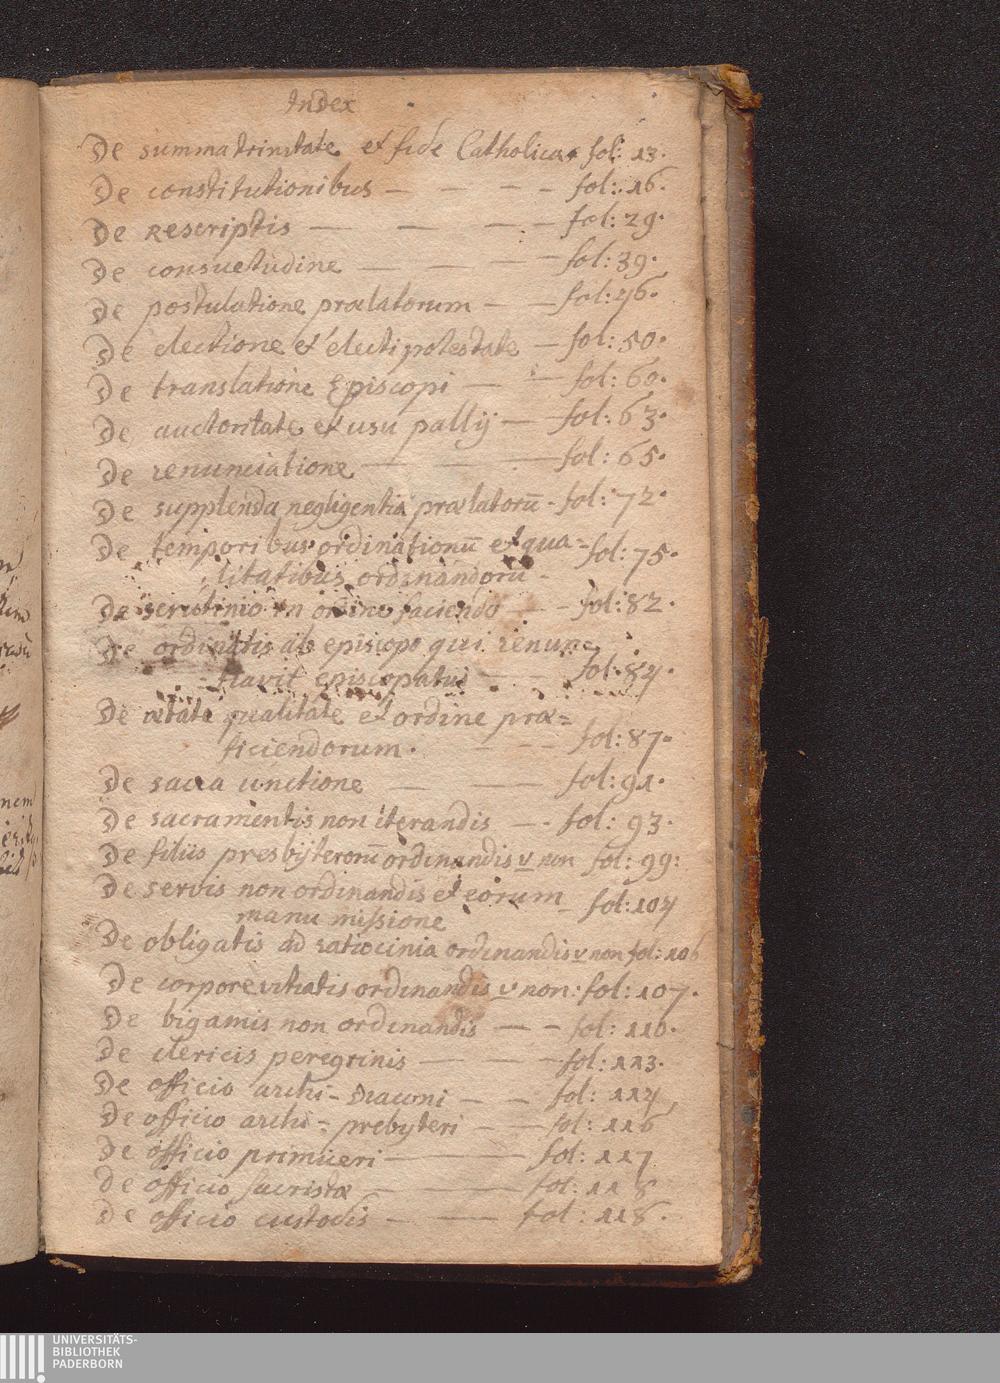 Index
De summa trinitate et fide Catholica fol: 13.
De constitutionibus — — — — fol: 16.
De Rescriptis — — — — fol: 29.
De consuetudine — — — — fol: 39.
De postulatione prælatorum — — fol: 46.
De electione et electi potestate — fol: 50.
De translatione Episcopi — — fol: 60.
De auctoritate et usu pallÿ — fol: 63.
De renunciatione — — — fol: 65.
De supplenda negligentia prælatorū - fol: 72.
De temporibus ordinationū et qua= fol: 75.
litatibus ordinandorū -
De scrutinio in ordine faciendo — - fol: 82.
De ordinatis ab episcopo qui renun=
tiavit episcopatui — - fol: 84.
De ætate qualitate et ordine præ=
ficiendorum. — — — fol: 87.
De sacra unctione — — — fol: 91.
De sacramentis non iterandis — - fol: 93.
De filiis presbÿterorū ordinandis v non fol: 99:
De servis non ordinandis et eorum
manu missione - fol: 104
De obligatis ad ratiocinia ordinandis v non fol: 106
De corpore vitiatis ordinandis v non: fol: 107.
De bigamis non ordinandis — - fol: 110.
De clericis peregrinis — — — fol: 113.
De officio archi-diaconi — — fol: 114
De officio archi-prebyteri — — fol: 116
De officio primiceri — — fol: 117
De officio sacristæ — — fol: 118
De officio custodis — — fol: 118.
UNIVERSITÄTS-
BIBLIOTHEK
PADERBORN